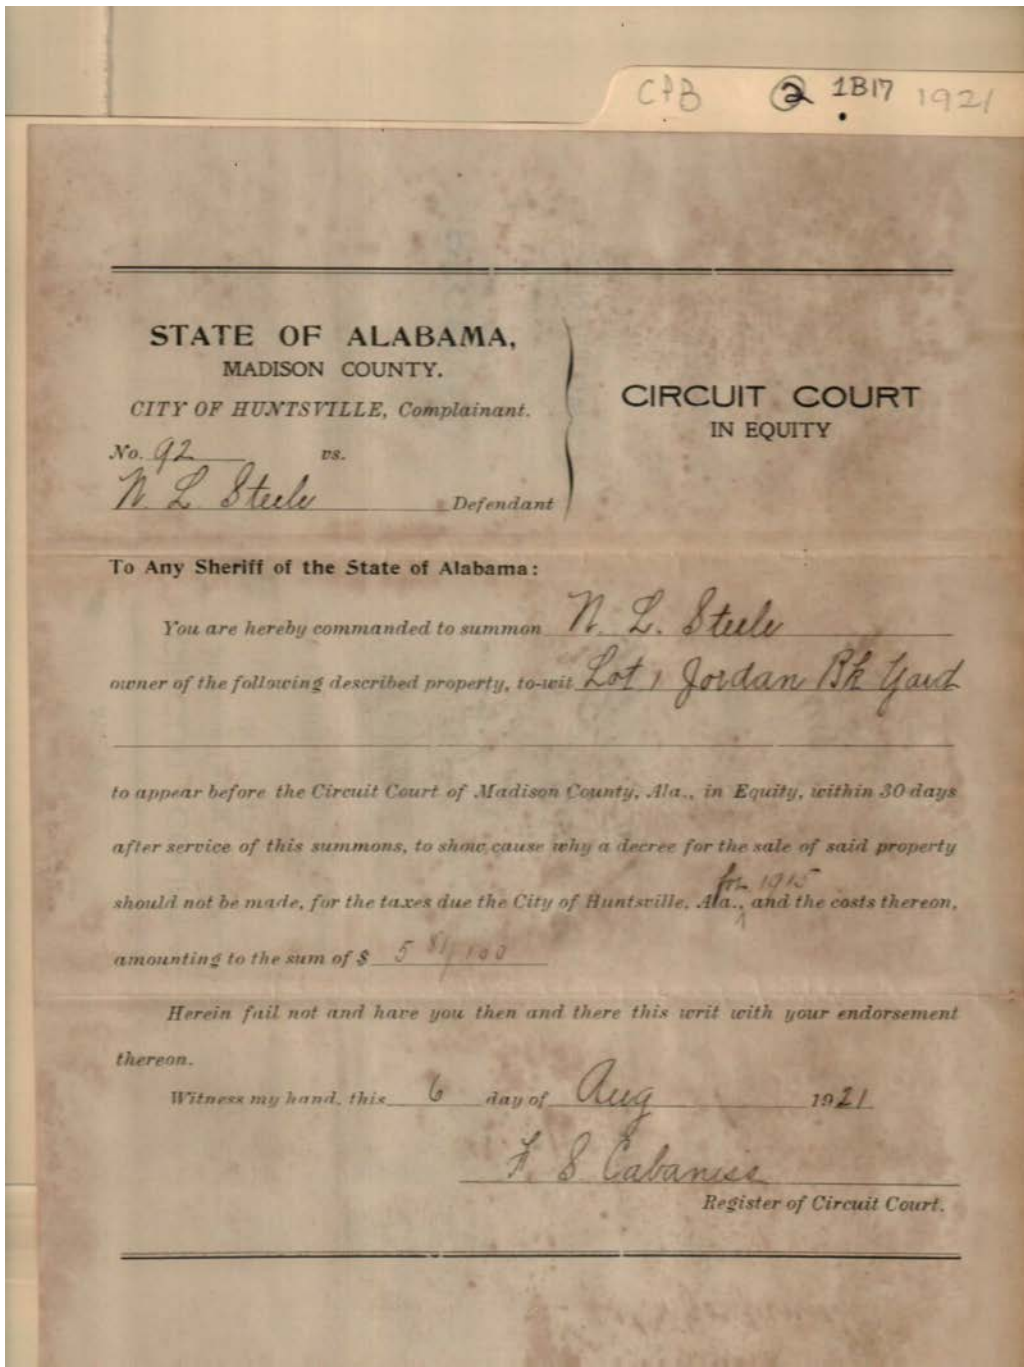 CPB 2 1B17 1921
STATE OF ALABAMA,
MADISON COUNTY.
CITY OF HUNTSVILLE, Complainant.
No. 92 vs.
N. L. Steele Defendant
CIRCUIT COURT
IN EQUITY
To Any Sheriff of the State of Alabama:
You are hereby commanded to summon N. L. Steele
owner of the following described property, to-wit Lot 1 Jordan Bk Yard
to appear before the Circuit Court of Madison County, Ala., in Equity, within 30 days
after service of this summons, to show cause why a decree for the sale of said property
for 1915
should not be made, for the taxes due the City of Huntsville, Ala., and the costs thereon,
amounting to the sum of $ 5 81/100
Herein fail not and have you then and there this writ with your endorsement
thereon.
Witness my hand, this 6 day of Aug 1921
F. S. Cabaniss
Register of Circuit Court.